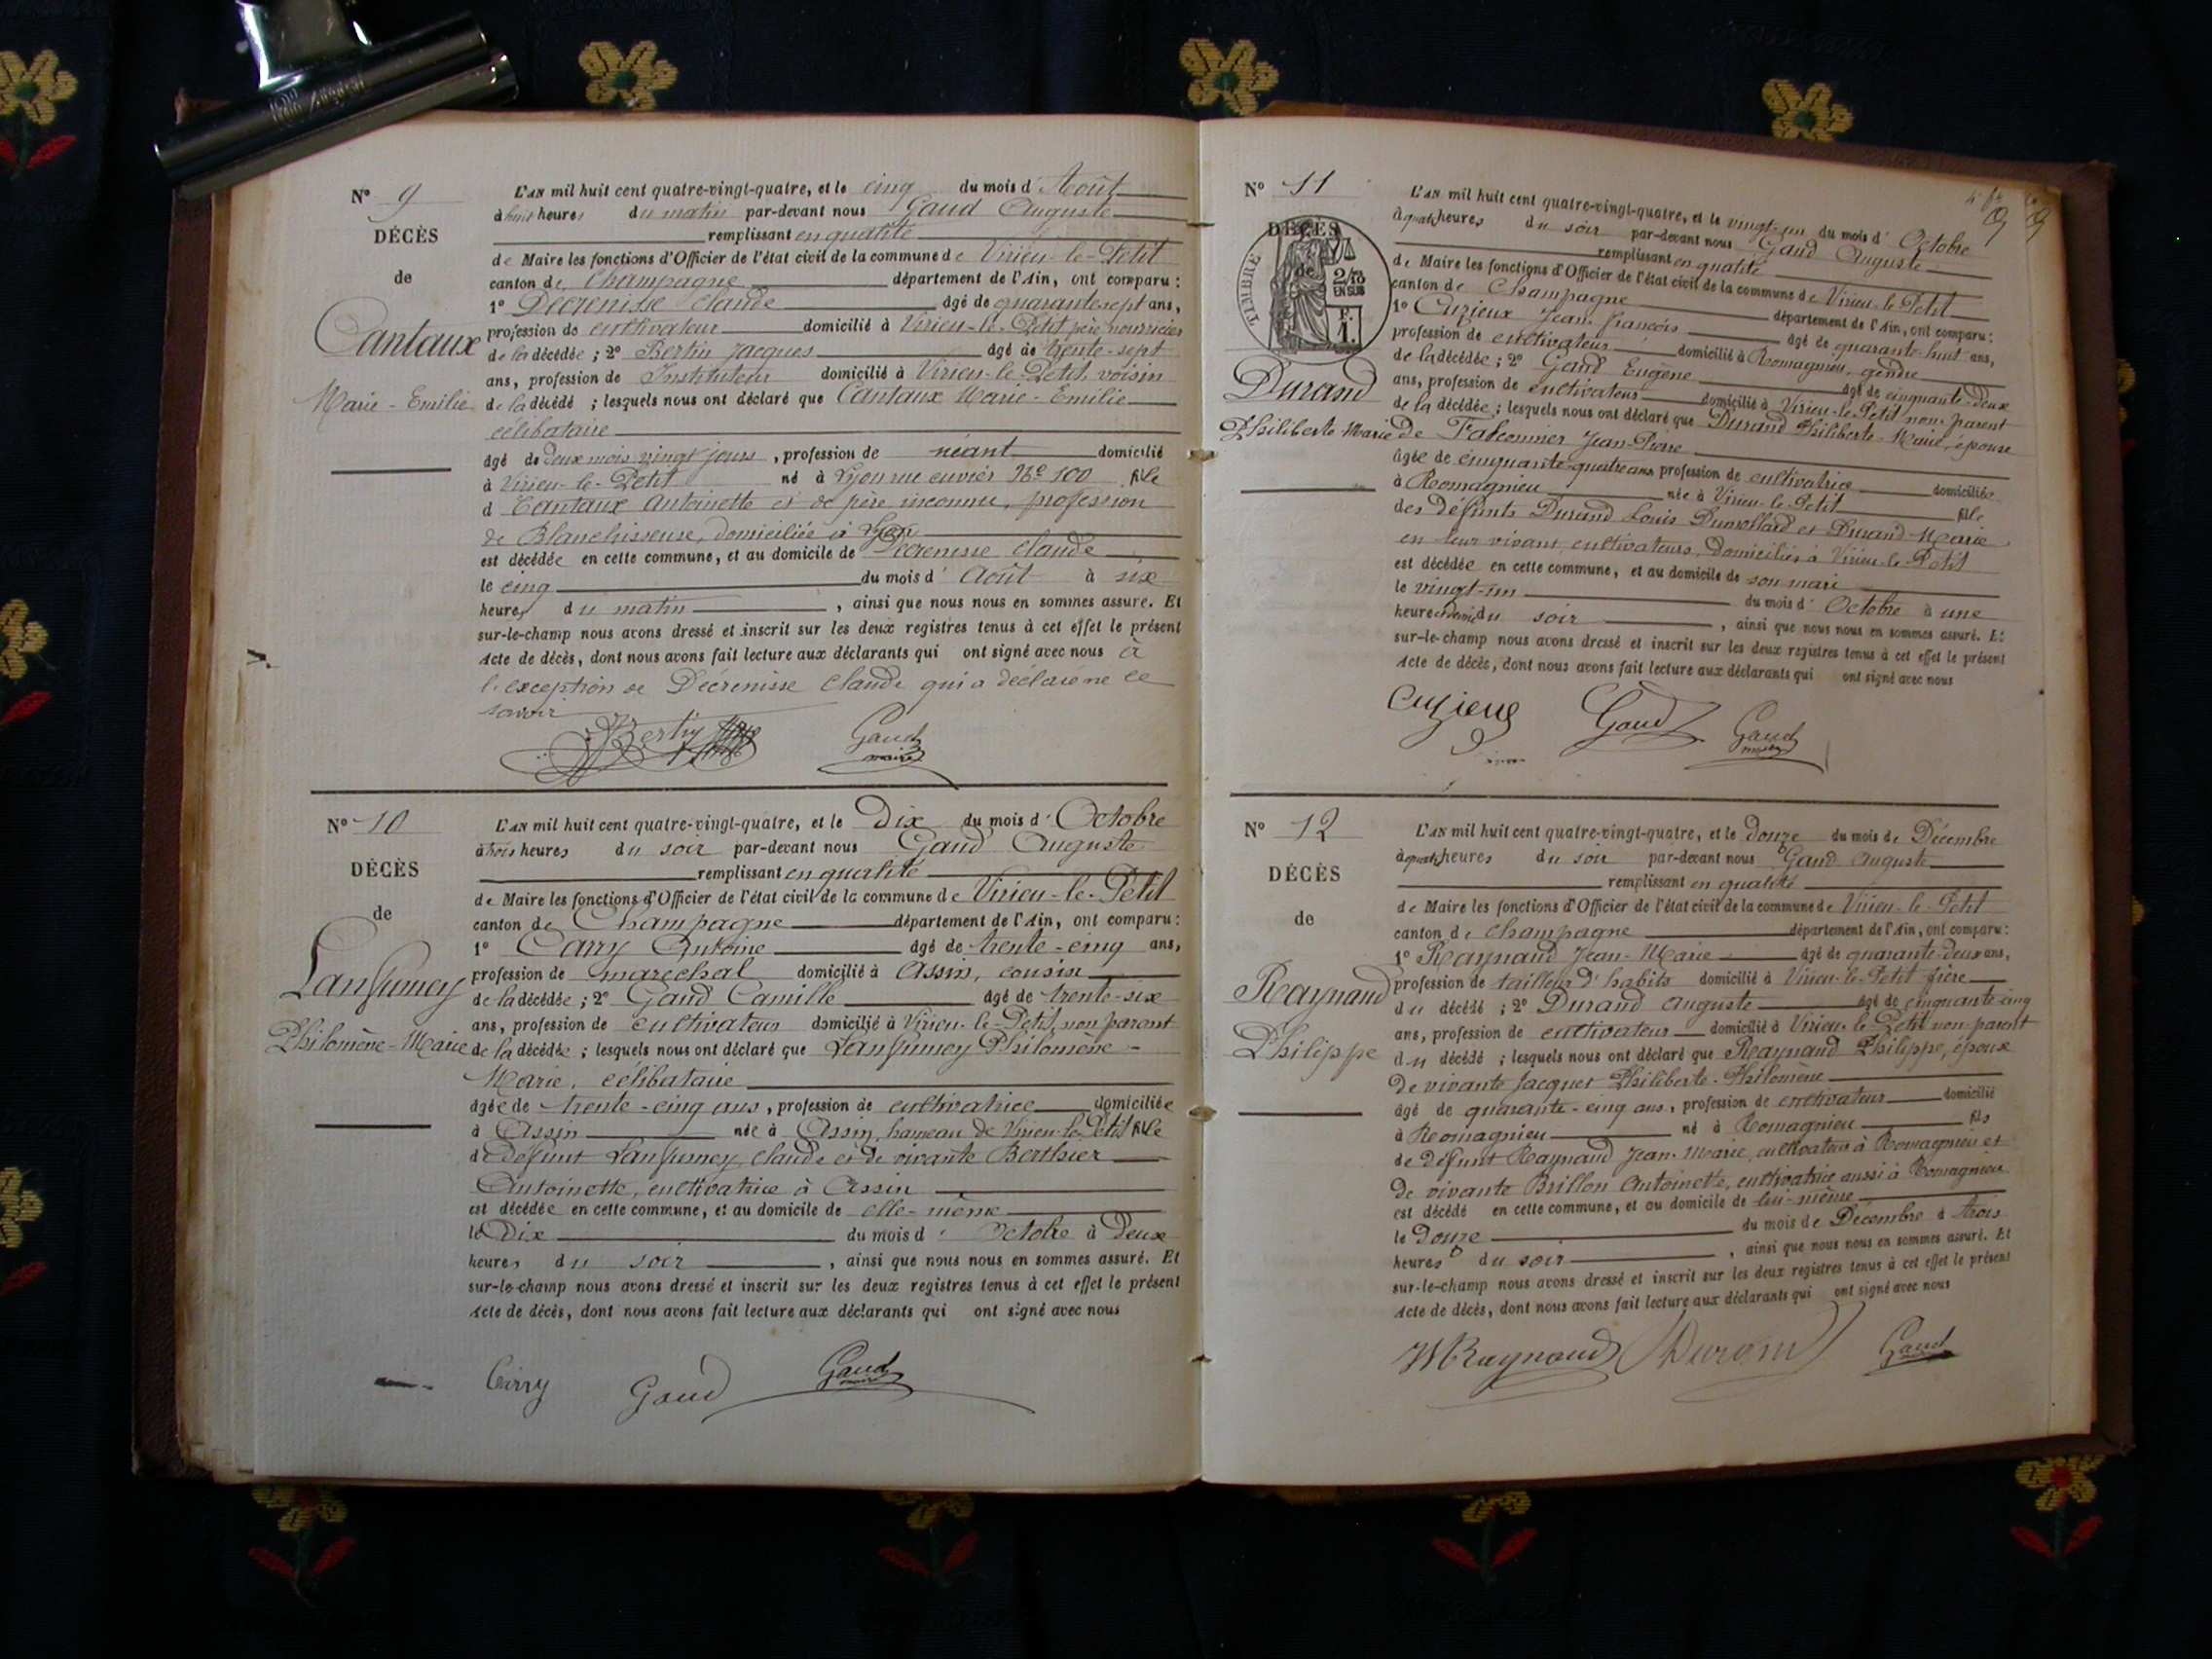 Nº 9
DÉCÈS
de
Cantaux
Marie-Emilie
L'AN mil huit cent quatre-vingt-quatre, et le cinq du mois d'Août
à huit heures du matin par-devant nous Gaud Auguste
remplissant en qualité
de Maire les fonctions d'Officier de l'état civil de la commune de Virieu-le-Petit
canton de Champagne département de l'Ain, ont comparu :
1º Décrenisse Claude âgé de quarante sept ans,
profession de cultivateur domicilié à Virieu-le-Petit père nourricier
de la décédée ; 2º Bertin Jacques âgé de trente-sept
ans, profession de Instituteur domicilié à Virieu-le-Petit, voisin
de la décédé ; lesquels nous ont déclaré que Cantaux Marie-Emilie
célibataire
âgé de deux mois vingt jours, profession de néant domicilié
à Virieu-le-Petit né à Lyon rue Nº 100 fille
d Cantaux Antoinette et de père inconnu, profession
de Blanchisseuse, domiciliée à Lyon
est décédée en cette commune, et au domicile de Décrenisse Claude
le cinq du mois d'Août à six
heures du matin, ainsi que nous nous en sommes assuré. Et
sur-le-champ nous avons dressé et inscrit sur les deux registres tenus à cet effet le présent
Acte de décès, dont nous avons fait lecture aux déclarants qui ont signé avec nous à
l'exception de Décrenisse Claude qui a déclaré ne le
savoir
Bertin Gaud
maire
Nº 10
DÉCÈS
de
Lansumey
Philomène-Marie
L'AN mil huit cent quatre-vingt-quatre, et le Dix du mois d'Octobre
à trois heures du soir par-devant nous Gaud Auguste
remplissant en qualité
de Maire les fonctions d'Officier de l'état civil de la commune de Virieu-le-Petit
canton de Champagne département de l'Ain, ont comparu :
1º Carry Antoine âgé de trente-cinq ans,
profession de maréchal domicilié à Assin, cousin
de la décédée ; 2º Gaud Camille âgé de trente-six
ans, profession de cultivateur domicilié à Virieu-le-Petit, non parent
de la décédée ; lesquels nous ont déclaré que Lansumey Philomène-
Marie, célibataire
âgée de trente-cinq ans, profession de cultivatrice domiciliée
à Assin née à Assin, hameau de Virieu-le-Petit fille
de défunt Lansumey Claude et de vivante Berthier
Antoinette, cultivatrice à Assin
est décédée en cette commune, et au domicile de elle-même
le Dix du mois d'Octobre à Deux
heures du soir, ainsi que nous nous en sommes assuré. Et
sur-le-champ nous avons dressé et inscrit sur les deux registres tenus à cet effet le présent
Acte de décès, dont nous avons fait lecture aux déclarants qui ont signé avec nous
Carry Gaud Gaud
Nº 11
DÉCÈS
de
TIMBRE
2/10
EN SUS
F.
1.
Durand
Philiberte Marie
L'AN mil huit cent quatre-vingt-quatre, et le vingt-un du mois d'Octobre
à quatre heures du soir par-devant nous Gaud Auguste
remplissant en qualité
de Maire les fonctions d'Officier de l'état civil de la commune de Virieu-le-Petit
canton de Champagne département de l'Ain, ont comparu :
1º Cuzieux Jean-François âgé de quarante-huit ans,
profession de cultivateur domicilié à Romagnieu, gendre
de la décédée ; 2º Gaud Eugène âgé de cinquante-deux
ans, profession de cultivateur domicilié à Virieu-le-Petit non parent
de la décédée ; lesquels nous ont déclaré que Durand Philiberte-Marie, épouse
de Falconnier Jean-Pierre
âgée de cinquante-quatre ans profession de cultivatrice domiciliée
à Romagnieu née à Virieu-le-Petit fille
des défunts Durand Louis Dumollard et Durand Marie
en leur vivant, cultivateurs, domiciliés à Virieu-le-Petit
est décédée en cette commune, et au domicile de son mari
le vingt-un du mois d'Octobre à une
heure et demie du soir, ainsi que nous nous en sommes assuré. Et
sur-le-champ nous avons dressé et inscrit sur les deux registres tenus à cet effet le présent
Acte de décès, dont nous avons fait lecture aux déclarants qui ont signé avec nous
Cuzieux Gaud Gaud
maire
Nº 12
DÉCÈS
de
Raynaud
Philippe
L'AN mil huit cent quatre-vingt-quatre, et le douze du mois de Décembre
à quatre heures du soir par-devant nous Gaud Auguste
remplissant en qualité
de Maire les fonctions d'Officier de l'état civil de la commune de Virieu-le-Petit
canton de Champagne département de l'Ain, ont comparu :
1º Raynaud Jean-Marie âgé de quarante-deux ans,
profession de tailleur d'habits domicilié à Virieu-le-Petit frère
du décédé ; 2º Durand Auguste âgé de cinquante-cinq
ans, profession de cultivateur domicilié à Virieu-le-Petit non parent
du décédé ; lesquels nous ont déclaré que Raynaud Philippe, époux
de vivante Jacquet Philiberte-Philomène
âgé de quarante-cinq ans, profession de cultivateur domicilié
à Romagnieu né à Romagnieu fils
de défunt Raynaud Jean-Marie, cultivateur à Romagnieu et
de vivante Brillon Antoinette, cultivatrice aussi à Romagnieu
est décédé en cette commune, et au domicile de lui-même
le douze du mois de Décembre à trois
heures du soir, ainsi que nous nous en sommes assuré. Et
sur-le-champ nous avons dressé et inscrit sur les deux registres tenus à cet effet le présent
Acte de décès, dont nous avons fait lecture aux déclarants qui ont signé avec nous
Raynaud Durand Gaud